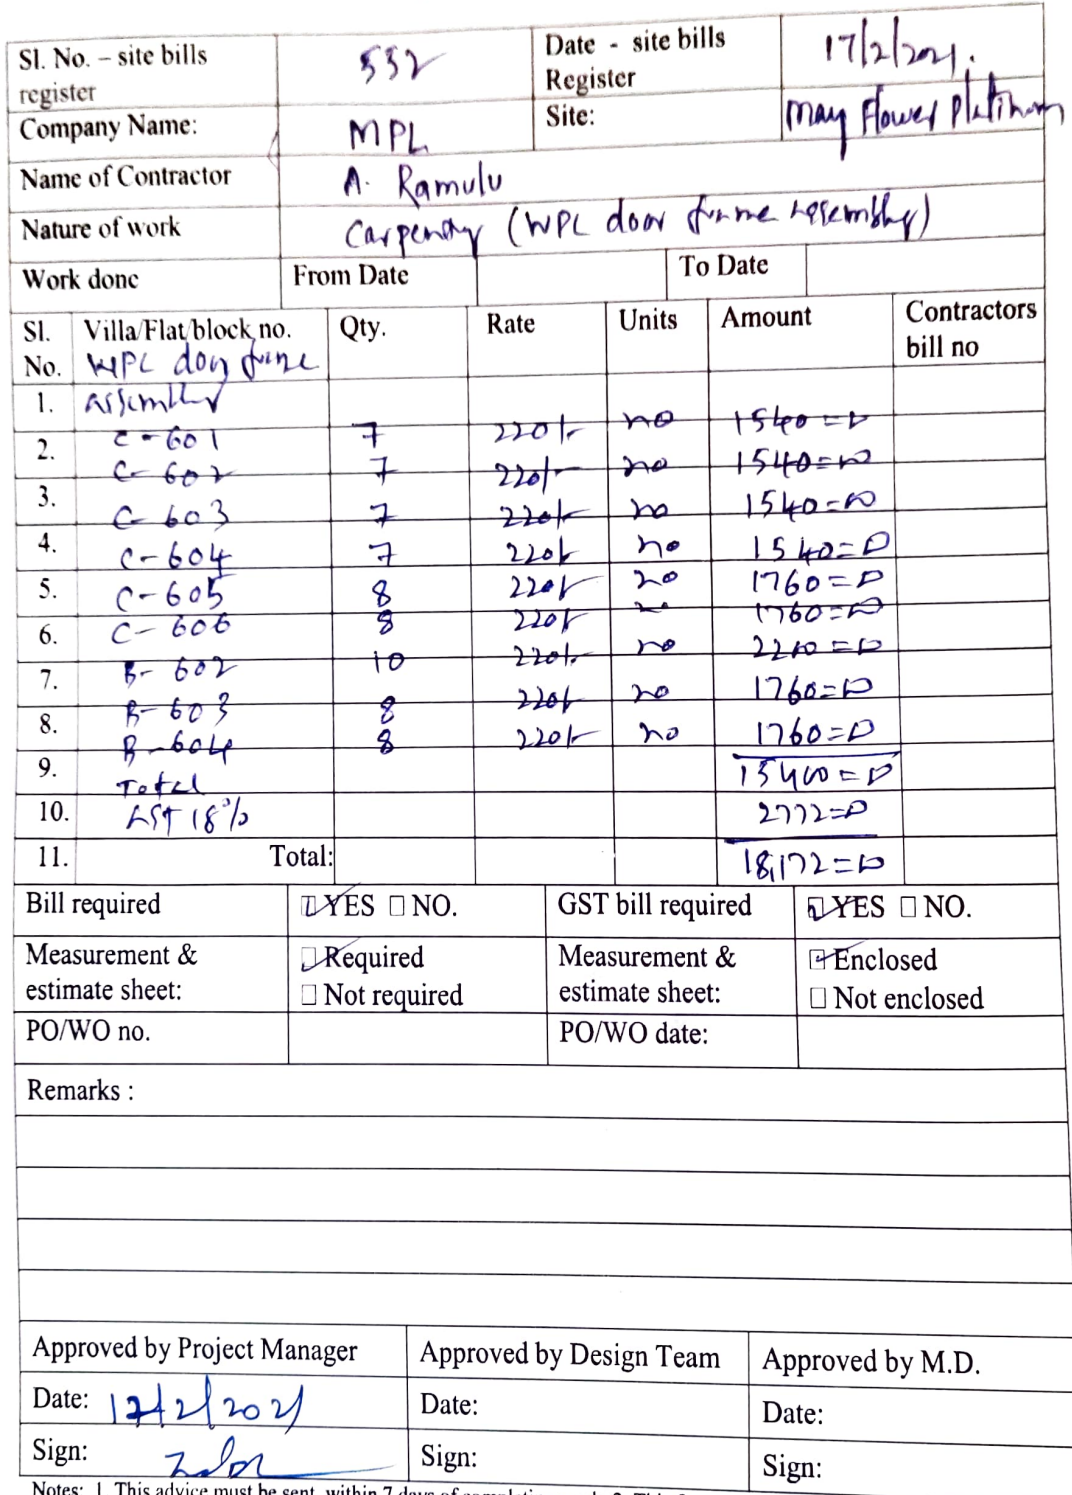 Sl. No. – site bills register 552 Date - site bills Register 17/2/2021.
Company Name: MPL Site: May Flower Platinum
Name of Contractor A. Ramulu
Nature of work Carpentry (WPC door frame assembly)
Work done From Date To Date
Sl. No. Villa/Flat/block no. Qty. Rate Units Amount Contractors bill no
WPC door frame
1. assembly
C-601 7 220/- no 1540=00
2. C-602 7 220/- no 1540=00
3. C-603 7 220/- no 1540=00
4. C-604 7 220/- no 1540=00
5. C-605 8 220/- no 1760=00
6. C-606 8 220/- no 1760=00
7. B-602 10 220/- no 2200=00
8. B-603 8 220/- no 1760=00
B-604 8 220/- no 1760=00
9. Total 15400=00
10. GST 18% 2772=00
11. Total: 18,172=00
Bill required YES NO. GST bill required YES NO.
Measurement & estimate sheet: Required Not required Measurement & estimate sheet: Enclosed Not enclosed
PO/WO no. PO/WO date:
Remarks :
Approved by Project Manager Approved by Design Team Approved by M.D.
Date: 17/2/2021 Date: Date:
Sign: Sign: Sign:
Notes: 1. This advice must be sent within 7 days of